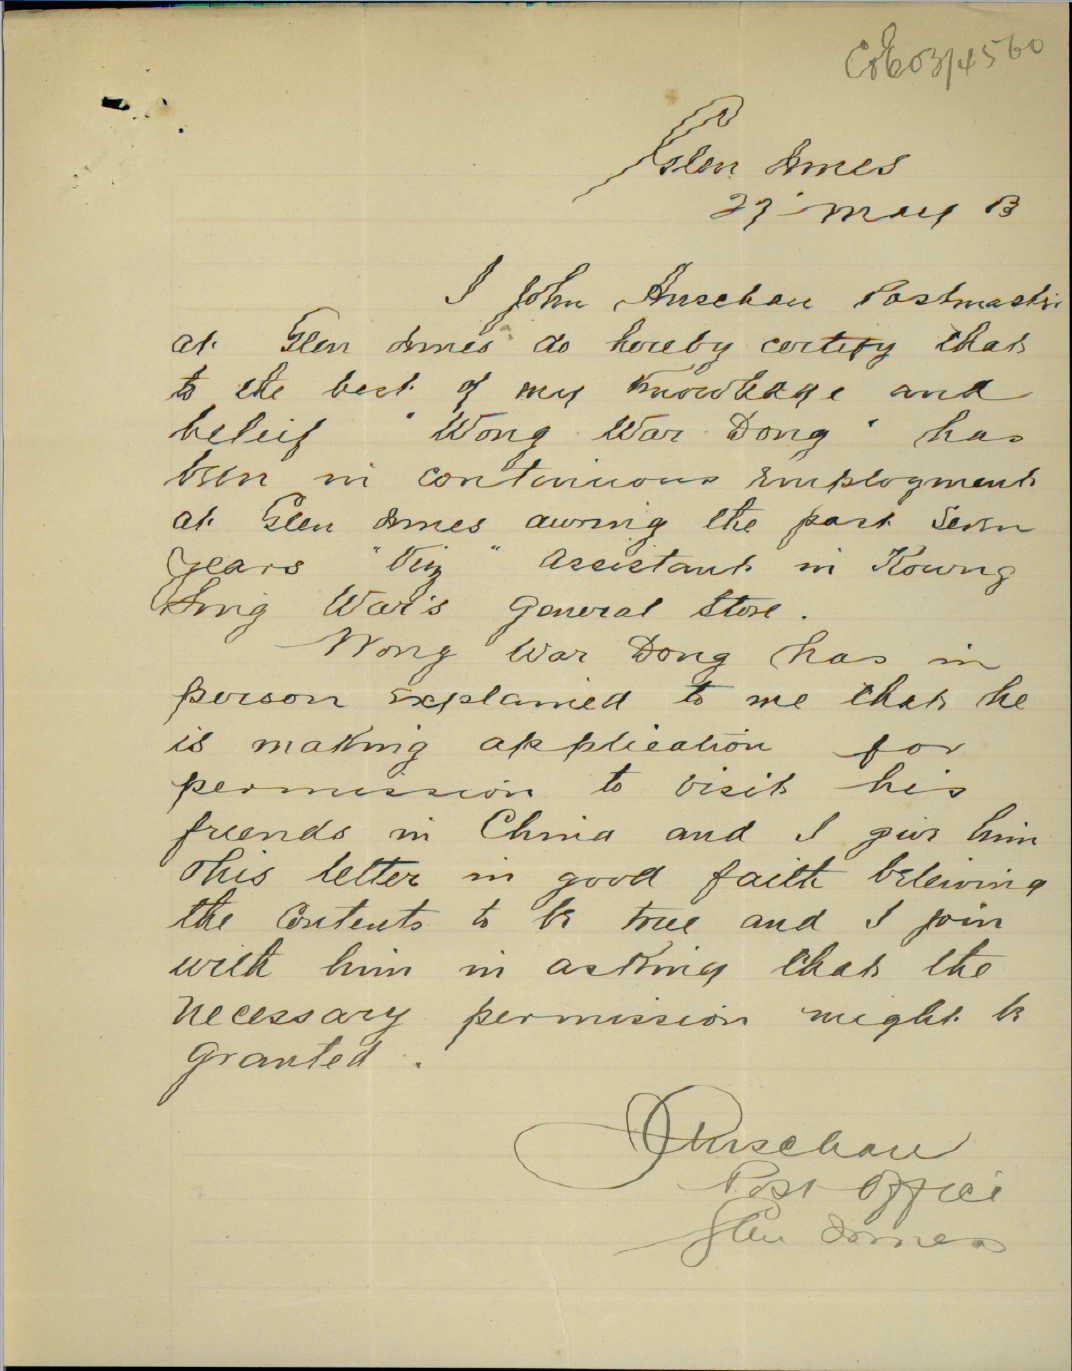 03/4560
Glen Innes
27 May 03
I John Anschau Postmaster
at Glen Innes do hereby certify that
to the best of my knowledge and
beleif "Wong War Dong" has
been in continuous employment
at Glen Innes during the past seven
years "Viz" Assistant in Kowng
Sing War's General Store.
Wong War Dong has in
person explained to me that he
is making application for
permission to visit his
friends in China and I give him
this letter in good faith beleiving
the contents to be true and I join
with him in asking that the
necessary permission might be
granted.
J Anschau
Post Office
Glen Innes